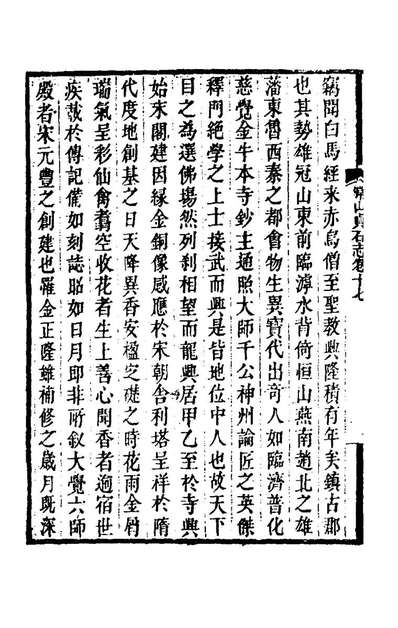 常山貞石志卷十七
竊聞白馬經来赤烏僧至聖教興隆積有年矣鎮古郡
也其勢雄冠山東前臨漳水背倚恒山燕南趙北之雄
藩東魯西秦之都會物生異寶代出奇人如臨濟普化
慈覺金牛本寺鈔主通照大師千公神州論匠之英傑
釋門絕學之上士接武而興是皆地位中人也故天下
目之為選佛場然列刹相望而龍興居甲乙至於寺興
始末閣建因緣金銅像感應於宋朝舍利塔呈祥於隋
代度地創基之日天降異香安楹定礎之時花雨金屑
瑞氣呈彩仙禽翥空收花者生上善心聞香者逈宿世
疾哉於傳記備如刻誌昭如日月即非所叙大覺六師
殿者宋元豐之創建也罹金正隆雖補修之歲月既深